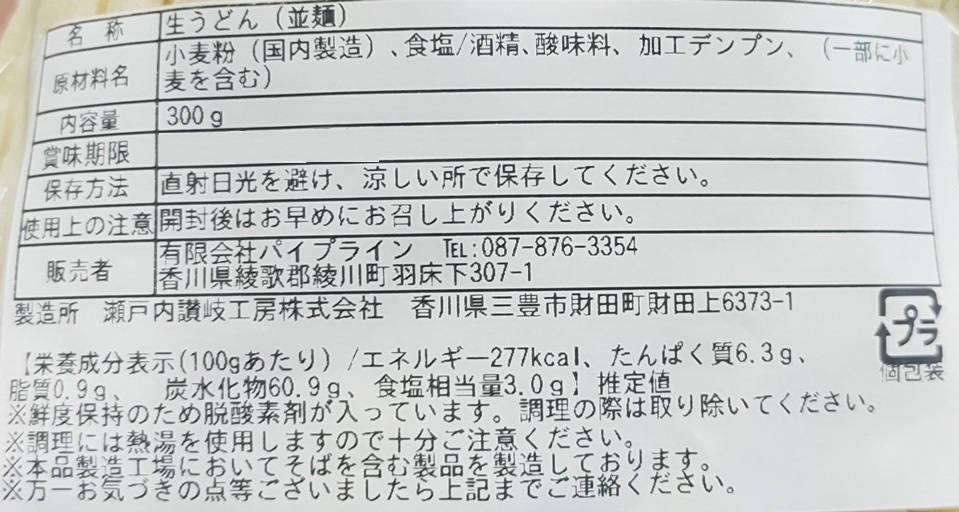 名称 生うどん（並麺）
原材料名 小麦粉（国内製造）、食塩/酒精、酸味料、加工デンプン、（一部に小
麦を含む）
内容量 300g
賞味期限
保存方法 直射日光を避け、涼しい所で保存してください。
使用上の注意 開封後はお早めにお召し上がりください。
販売者 有限会社パイプライン TEL:087-876-3354
香川県綾歌郡綾川町羽床下307-1
製造所 瀬戸内讃岐工房株式会社 香川県三豊市財田町財田上6373-1
プラ
個包装
【栄養成分表示(100gあたり)/エネルギー277kcal、たんぱく質6.3g、
脂質0.9g、 炭水化物60.9g、食塩相当量3.0g】推定値
※鮮度保持のため脱酸素剤が入っています。調理の際は取り除いてください。
※調理には熱湯を使用しますので十分ご注意ください。
※本品製造工場においてそばを含む製品を製造しております。
※万一お気づきの点等ございましたら上記までご連絡ください。